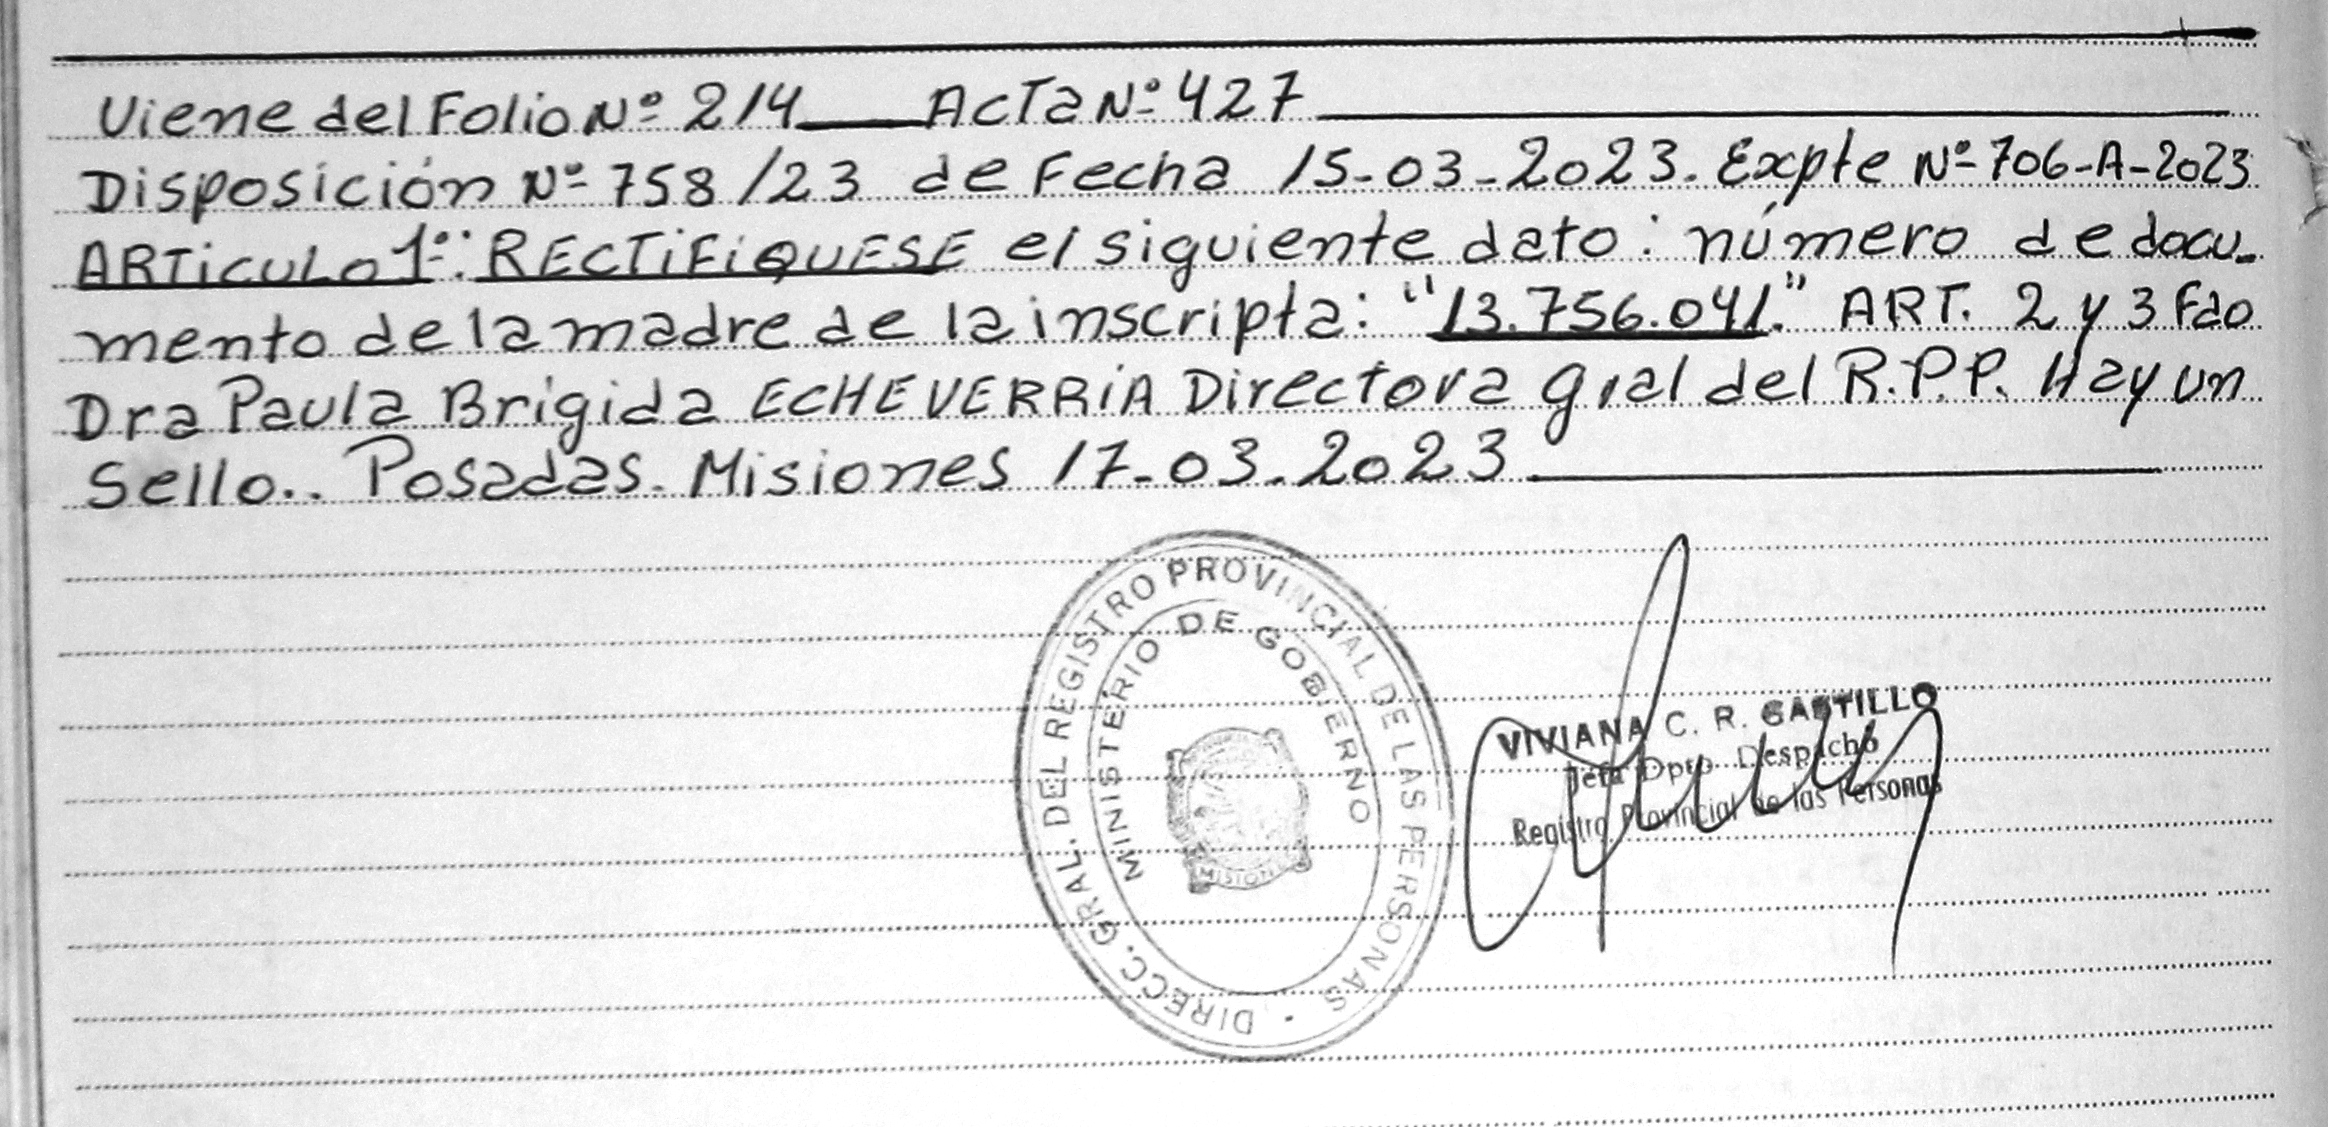 Viene del Folio Nº 214 Acta Nº 427
Disposición Nº 758/23 de Fecha 15-03-2023. Expte Nº 706-A-2023
ARTiCULO 1º: RECTIFIQUESE el siguiente dato: número de docu-
mento de la madre de la inscripta: "13.756.041." ART. 2 y 3 Fdo
Dra Paula Brigida ECHEVERRIA Directora gral del R.P.P. Hay un
Sello.. Posadas. Misiones 17-03-2023
DIRECC. GRAL. DEL REGISTRO PROVINCIAL DE LAS PERSONAS
MINISTERIO DE GOBIERNO
VIVIANA C. R. CASTILLO
Jefa Dpto Despacho
Registro Provincial de las Personas